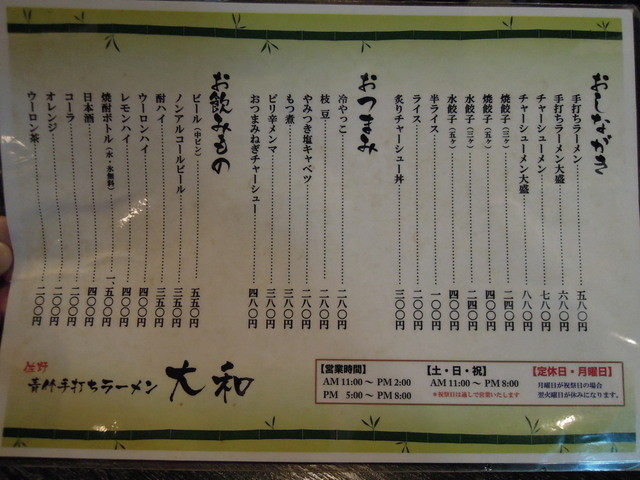 おしながき
手打ちラーメン 五八〇円
手打ちラーメン大盛 六八〇円
チャーシューメン 七八〇円
チャーシューメン大盛 八八〇円
焼餃子(三ヶ) 二四〇円
焼餃子(五ヶ) 四〇〇円
水餃子(三ヶ) 二四〇円
水餃子(五ヶ) 四〇〇円
半ライス 一〇〇円
ライス 二〇〇円
炙りチャーシュー丼 三〇〇円
おつまみ
冷やっこ 二八〇円
枝豆 二八〇円
やみつき塩キャベツ 二八〇円
もつ煮 三八〇円
ピリ辛メンマ 三八〇円
おつまみねぎチャーシュー 四八〇円
お飲みもの
ビール(中ビン) 五五〇円
ノンアルコールビール 三五〇円
酎ハイ 三五〇円
ウーロンハイ 四〇〇円
レモンハイ 四〇〇円
焼酎ボトル(水・氷無料) 一、五〇〇円
日本酒 四〇〇円
コーラ 二〇〇円
オレンジ 二〇〇円
ウーロン茶 二〇〇円
佐野
青竹手打ちラーメン 大和
【営業時間】
AM 11:00 〜 PM 2:00
PM 5:00 〜 PM 8:00
【土・日・祝】
AM 11:00 〜 PM 8:00
*祝祭日は通しで営業いたします
【定休日・月曜日】
月曜日が祝祭日の場合
翌火曜日が休みになります。